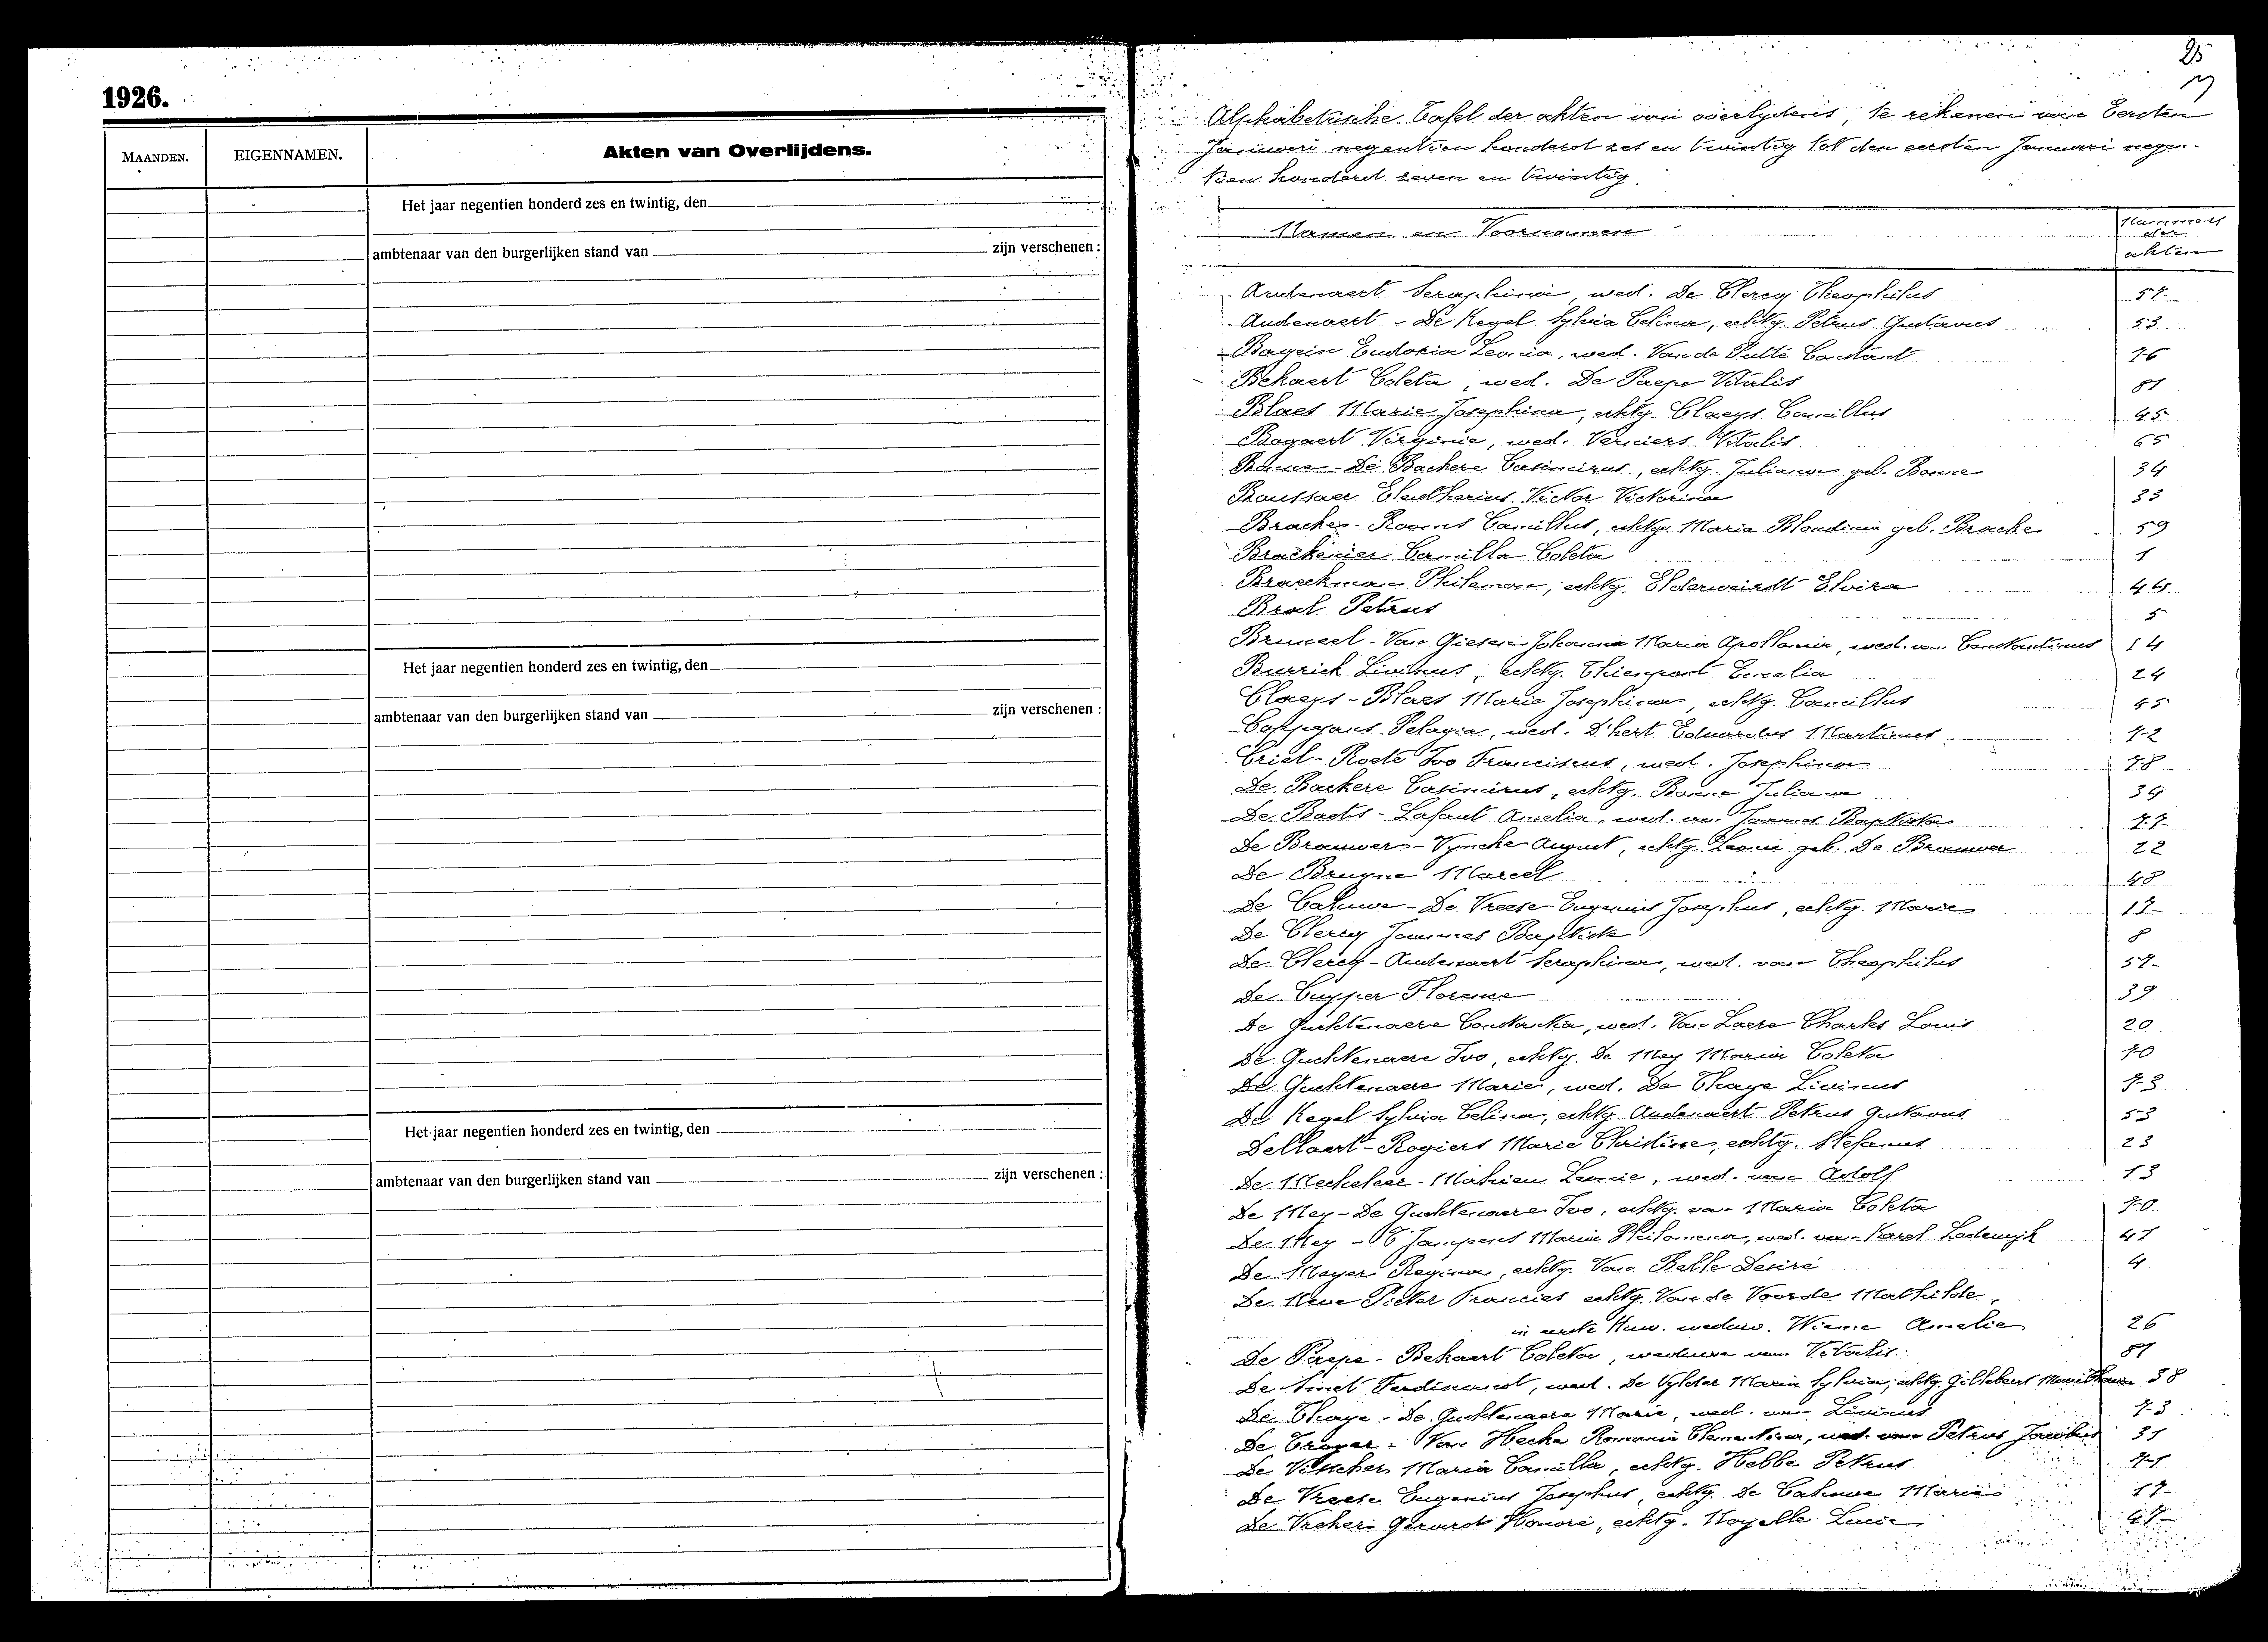 1926.
MAANDEN.
EIGENNAMEN.
Akten van Overlijdens.
Het jaar negentien honderd zes en twintig, den
ambtenaar van den burgerlijken stand van zijn verschenen :
Het jaar negentien honderd zes en twintig, den
ambtenaar van den burgerlijken stand van zijn verschenen :
Het jaar negentien honderd zes en twintig, den
ambtenaar van den burgerlijken stand van zijn verschenen :
25
Alphabetische Tafel der akten van overlijdens, te rekenen van Eersten
Januari negentien honderd zes en twintig tot den eersten Januari negen-
tien honderd zeven en twintig.
Namen en Voornamen
Nummers
der
akten
Audenaert Seraphina, wed. De Clercq Theophilus 57
Audenaert - De Kegel Sylvia Celina, echtg. Petrus Gustavus 53
Eudoxia Leonia, wed. Van de Putte Constant 76
Bekaert Coleta, wed. De Paepe Vitalis 81
Blaes Marie Josephina, echtg. Claeys Camillus 45
Bogaert Virginie, wed. Verniers Vitalis 65
Bonne - De Backere Casimirus, echtg. Juliana geb. Bonne 34
Boussaer Eleutherius Victor Victorina 33
Bracke - Rooms Camillus, echtg. Maria Blondina geb. Bracke 59
Brackenier Camilla Coleta 1
Braeckman Philemon, echtg. Elderweirdt Elvira 44
Bral Petrus 5
Bruneel - Van Giesen Johanna Maria Apollonia, wed. van Constantinus 14
Burrick Livinus, echtg. Thienpont Emelia 24
Claeys - Blaes Marie Josephina, echtg. Camillus 45
Coppejans Pelagia, wed. D'hert Eduardus Martinus 72
Criel - Roete Ivo Franciscus, wed. Josephina 78
De Backere Casimirus, echtg. Bonne Juliana 34
De Baets - Lafaut Amelia, wed. van Joannes Baptista 77
De Brauwer - Vyncke August, echtg. Leonie geb. De Brauwer 22
De Bruyne Marcel 48
De Caluwe - De Vreese Eugenius Josephus, echtg. Marie 17
De Clercq Joannes Baptist 8
De Clercq - Audenaert Seraphina, wed. van Theophilus 57
De Cuyper Florence 39
De Guchtenaere Constantia, wed. Van Laere Charles Louis 20
De Guchtenaere Ivo, echtg. De Mey Maria Coleta 70
De Guchtenaere Marie, wed. De Thaye Livinus 73
De Kegel Sylvia Celina, echtg. Audenaert Petrus Gustavus 53
Dellaert - Rogiers Marie Christine, echtg. Stefanus 23
De Meheleer - Mathieu Leonie, wed. van Adolf 13
De Mey - De Guchtenaere Ivo, echtg. van Maria Coleta 70
De Mey - T'Jampens Maria Philomena, wed. van Karel Lodewijk 41
De Meyer Regina, echtg. Van Belle Desiré 4
De Neve Pieter Francies echtg. Van de Voorde Mathilde,
in eerste Huw. weduw. Wieme Amelie 26
De Paepe - Bekaert Coleta, weduwe van Vitalis 81
De Smet Ferdinand, wed. De Vylder Maria Sylvia, echtg. Gillebert 38
De Thaye - De Guchtenaere Marie, wed. van Livinus 73
De Troyer - Van Hecke Romania Clementina, wed. van Petrus Jacobus 31
De Visscher Maria Camilla, echtg. Hebbe Petrus 71
De Vreese Eugenius Josephus, echtg. De Caluwe Marie 17
De Vrieheri Gerard Honoré, echtg. Noyelle Lucie 47